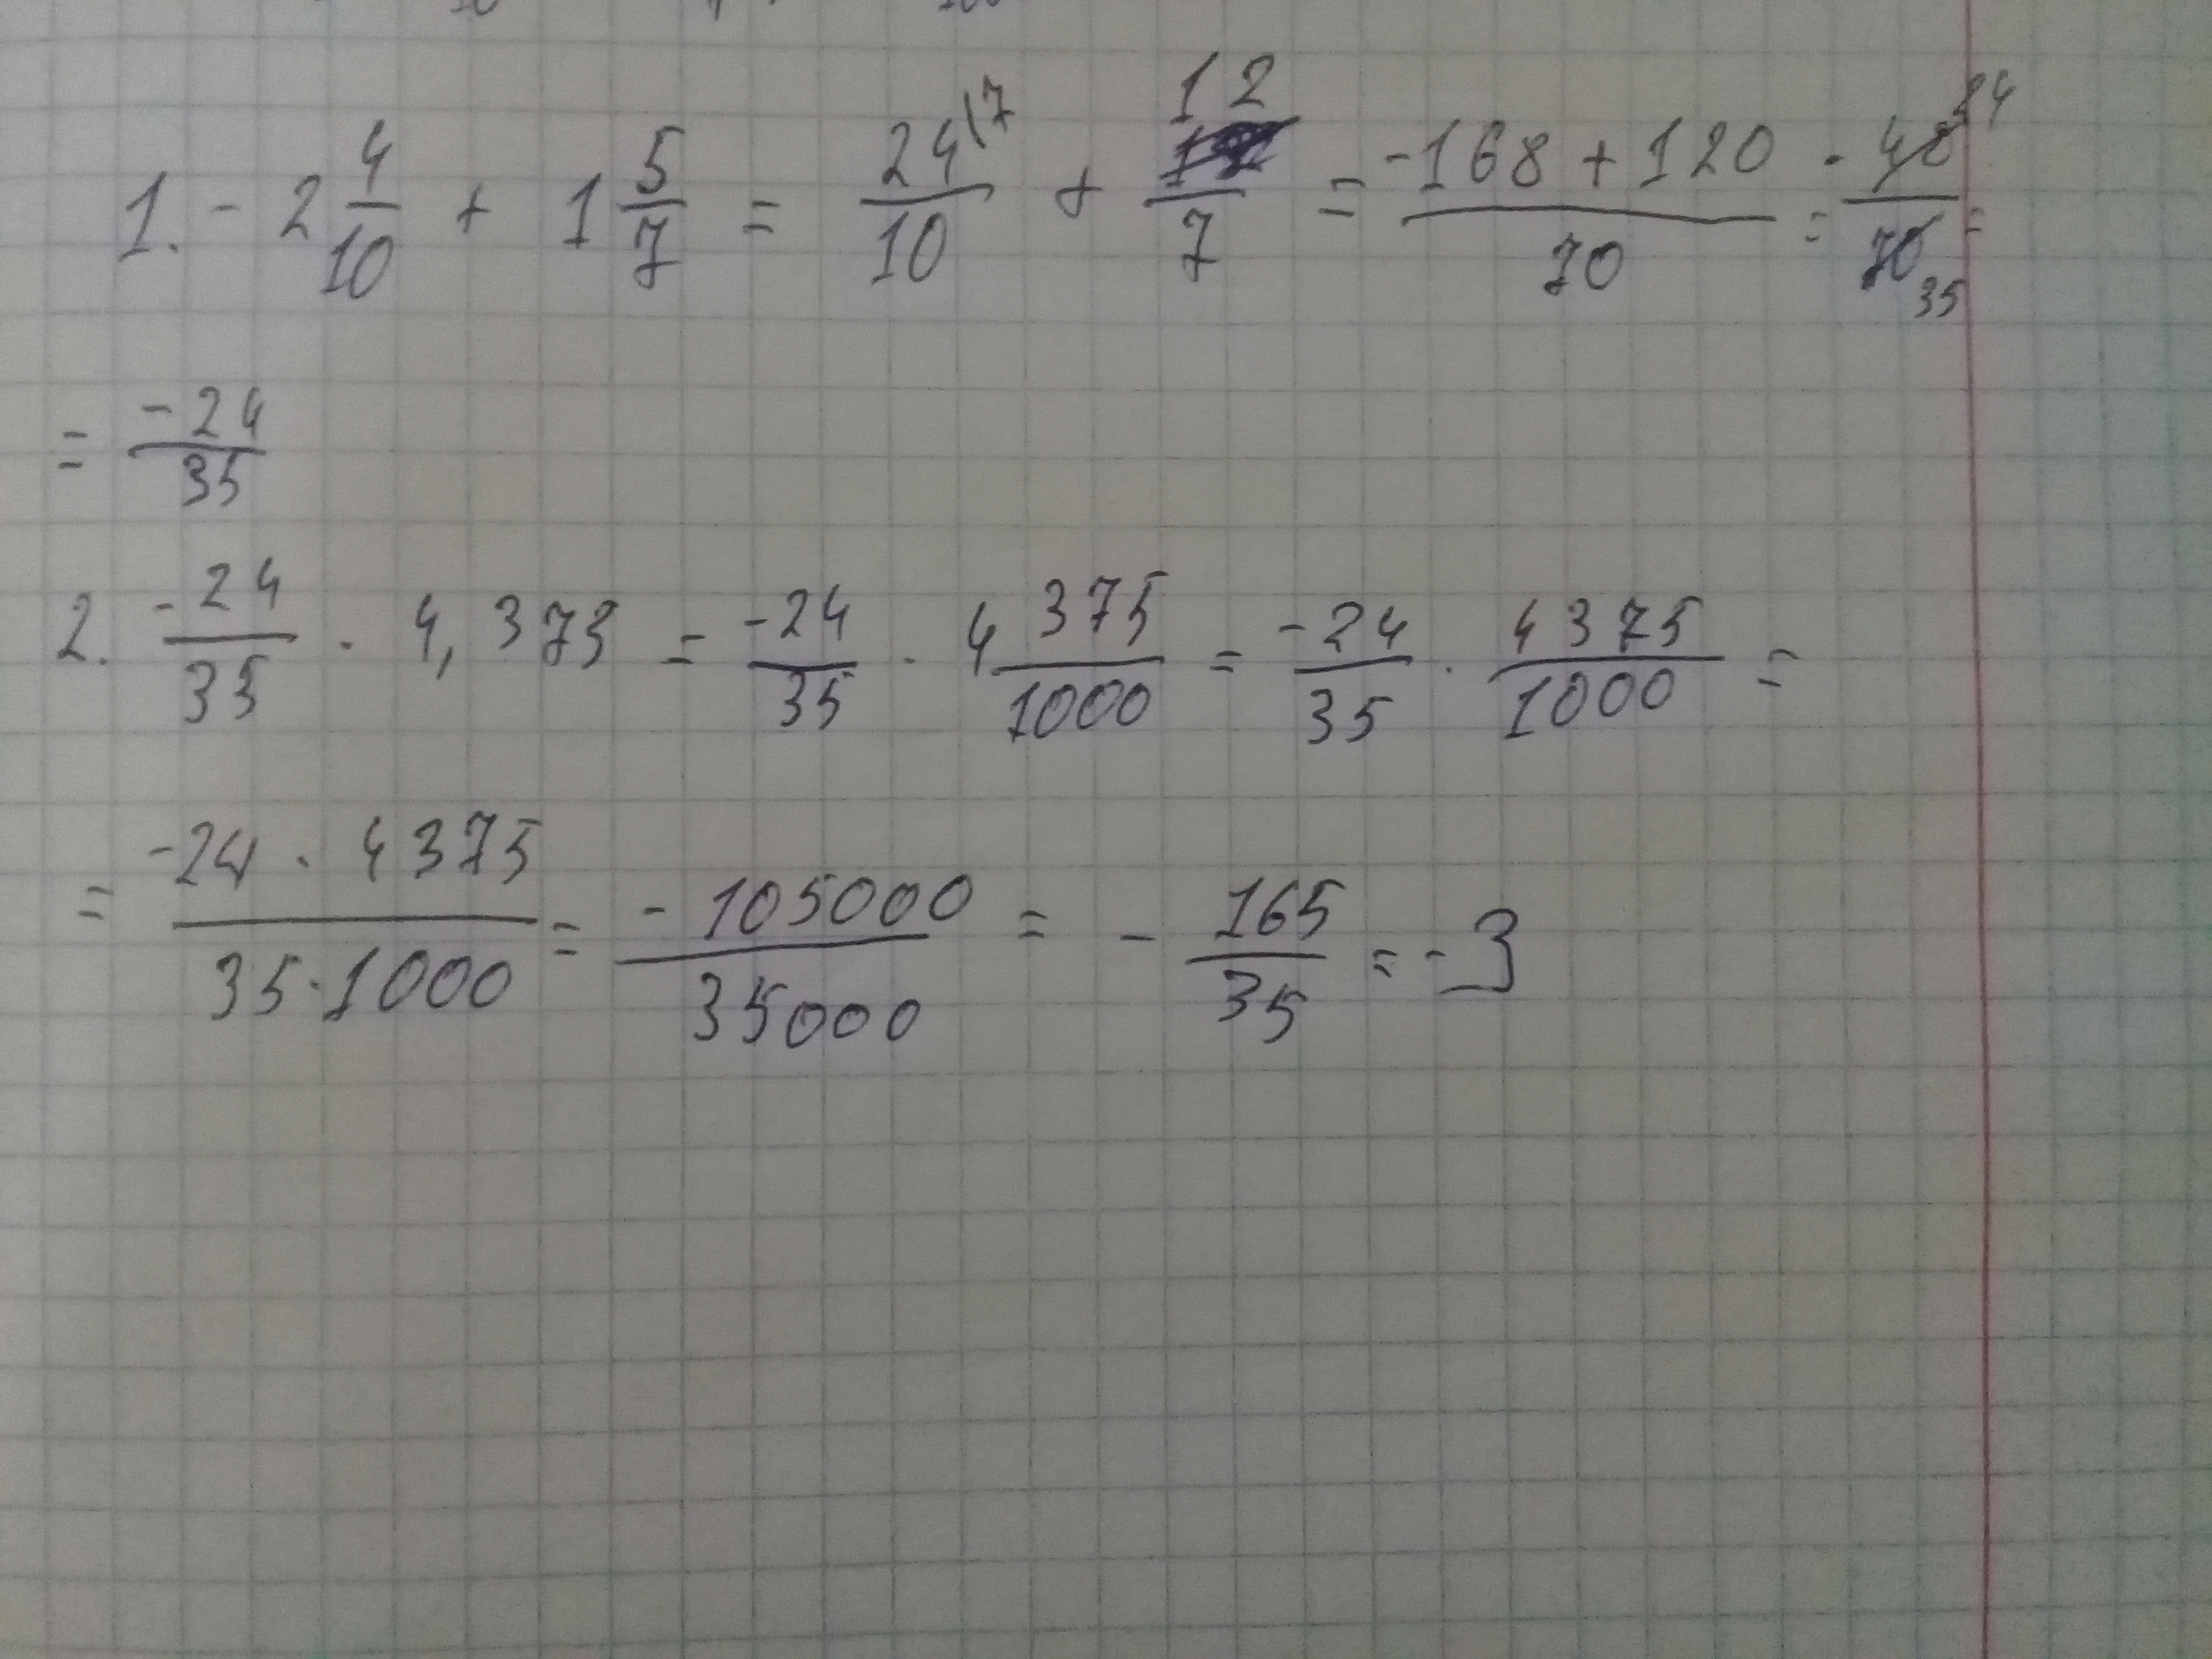 1. - 2 4/10 + 1 5/7 = 24\7/10 + 12/7 = -168 + 120/70 = - 48 24/70 35 =
= -24/35
2. -24/35 · 4,375 = -24/35 · 4 375/1000 = -24/35 · 4375/1000 =
= -24 · 4375/35·1000 = -105000/35000 = - 165/35 = -3